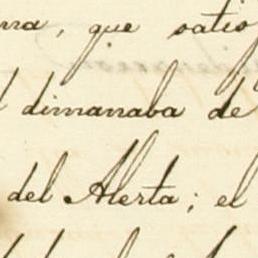 que satis
dimanaba de
del Alerta; el